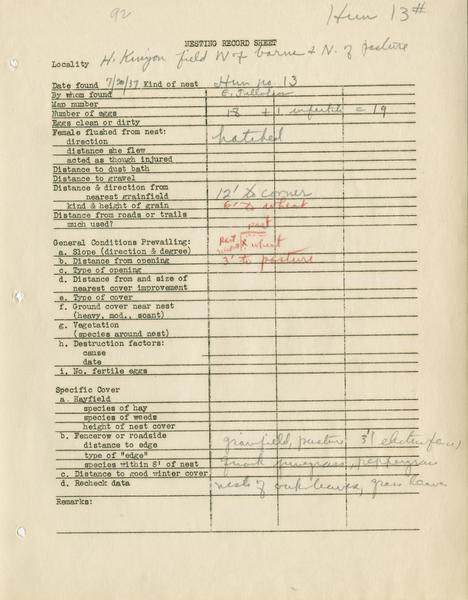 92
Hun 13#
NESTING RECORD SHEET
Locality H. Kinyon field W of barns & N. of pasture
Date found 7/20/37 Kind of nest Hun no. 13
By whom found
Map number
Number of eggs 18 + 1 infertile = 19
Eggs clean or dirty
Female flushed from nest: hatched
direction
distance she flew
acted as though injured
Distance to dust bath
Distance to gravel
Distance & direction from
nearest grainfield 12' to corner
kind & height of grain 6' to wheat
Distance from roads or trails
much used? past
General Conditions Prevailing: past X wheat
a. Slope (direction & degree)
b. Distance from opening 3' to pasture
c. Type of opening
d. Distance from and size of
nearest cover improvement
e. Type of cover
f. Ground cover near nest
(heavy, mod., scant)
g. Vegetation
(species around nest)
h. Destruction factors:
cause
date
i. No. fertile eggs
Specific Cover
a. Hayfield
species of hay
species of weeds
height of nest cover
b. Fencerow or roadside grainfield, pasture 3'
distance to edge
type of "edge"
species within 8' of nest Quack Junegrass, peppergrass
c. Distance to good winter cover
d. Recheck data nest of oak leaves, grass leaves
Remarks: